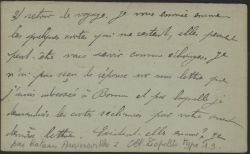 De retour de voyage, je vous envoie encore
les quelques cartes qui me restent, elles peuvent
peut être vous servir comme échanges, je
n'ai pas reçu de réponse sur une lettre que
j'avais adressée à Bonna et par laquelle je
demandais les cartes réclamées par votre avant
dernière lettre.
par bateau 2 Léopold 13.